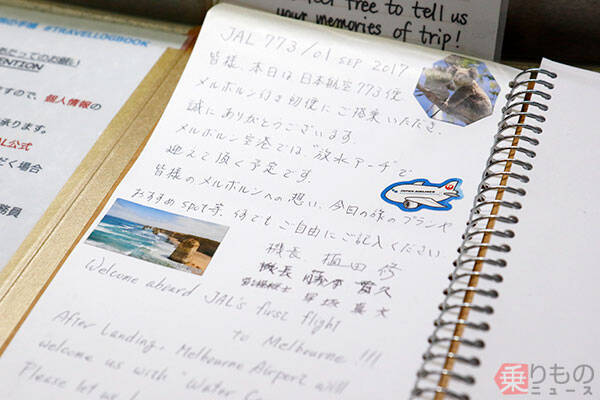 feel free to tell us
your memories of trip!
の手帳 #TRAVELLOGBOOK
にあたってのお願い
ますので、個人情報の
承ります。
AL公式
だく場合
務員
JAL 773/01 SEP 2017
皆様、本日は日本航空773便
メルボルン行き初便にご搭乗いただき、
誠にありがとうございます。
メルボルン空港では“放水アーチ”で
迎えて頂く予定です。
皆様のメルボルンへの想い、今日の旅のプランや
おすすめ spot等、何でもご自由にご記入ください。
機長 植田 修
機長 藤本
JAPAN AIRLINES
Welcome aboard JAL's first flight
to Melbourne !!!
After Landing, Melbourne Airport will
welcome us with "Water
Please let us
乗りものニュース